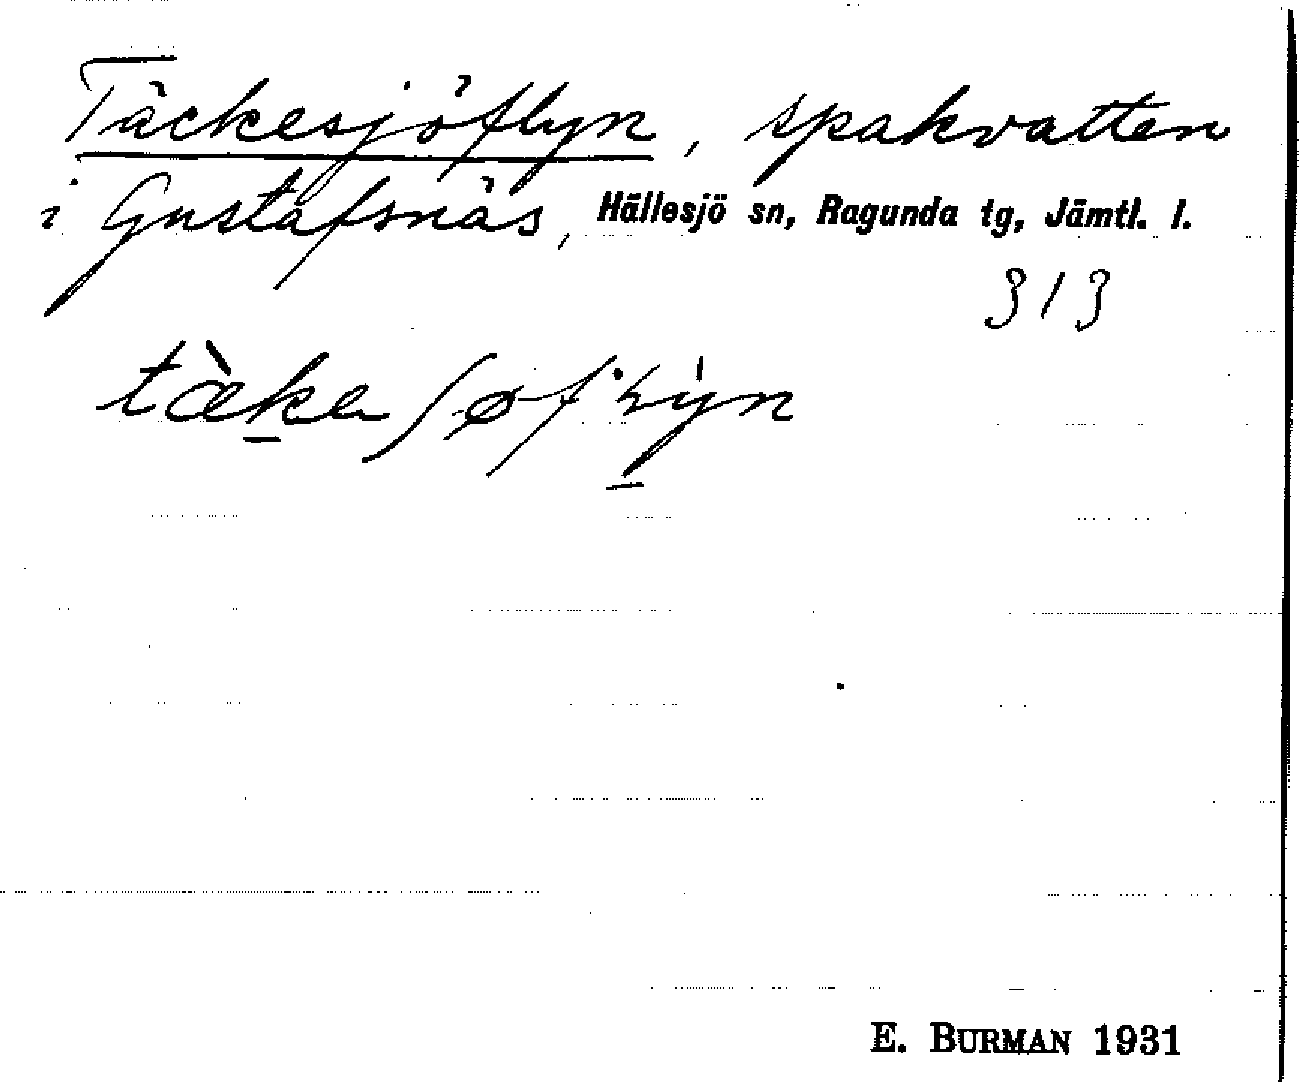 Täckesjöflyn, spakvatten
i Gustafsnäs, Hällesjö sn, Ragunda tg, Jämtl. l.
313
E. BURMAN 1931